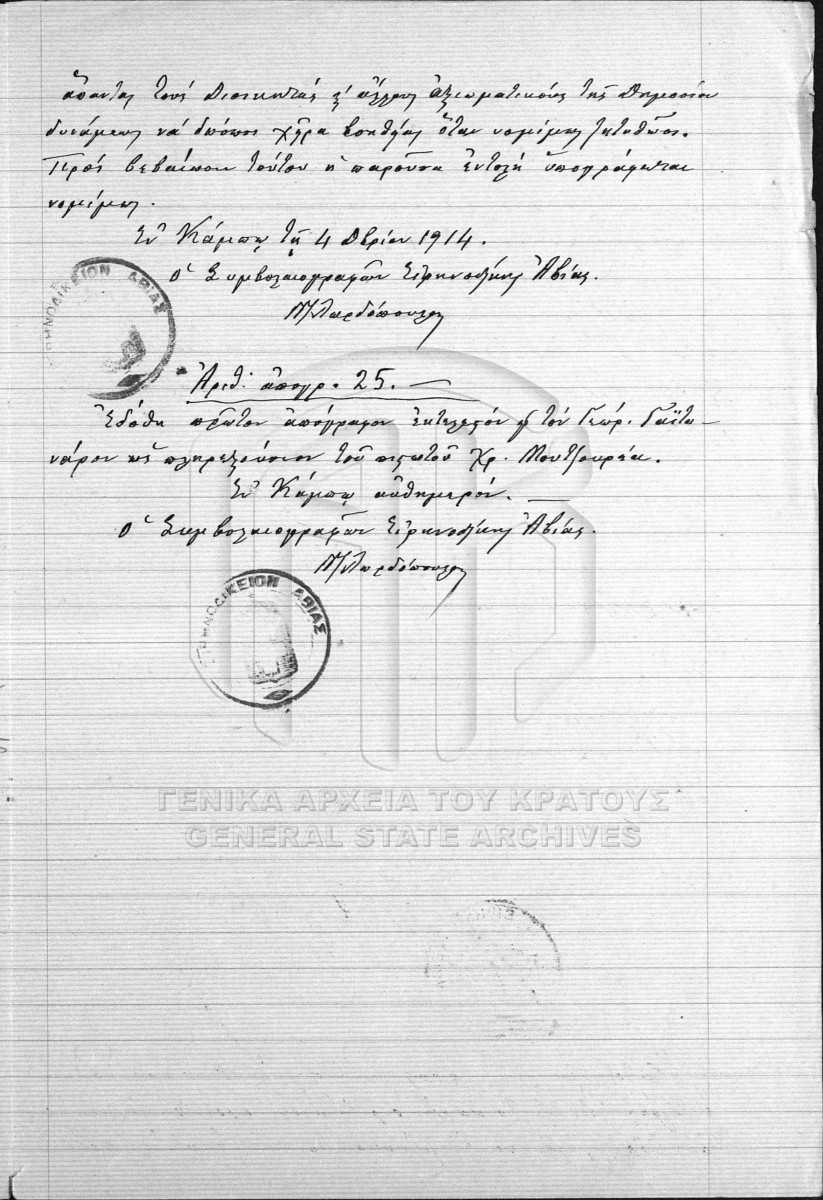 ἅπαντας τοὺς Διοικητὰς κ' ἄλλους ἀξιωματικοὺς τῆς δημοσίου
δυνάμεως νὰ δώσωσι χεῖρα βοηθείας ὅταν νομίμως ζητηθῶσι.
Πρὸς βεβαίωσιν τούτου ἡ παροῦσα ἐντολὴ ὑπογράφεται
νομίμως.
Ἐν Κάμπῳ τῇ 4 8βρίου 1914.
Ὁ Συμβολαιογραφῶν Εἰρηνοδίκης Ἀβίας.
ΕΙΡΗΝΟΔΙΚΕΙΟΝ ΑΒΙΑΣ
Ἀριθ. ἀπογρ. 25.
Ἐδόθη πρῶτον ἀπόγραφον ἐκτελεστὸν πρὸς τὸν Γεώρ.
ὡς πληρεξούσιον τοῦ πιστωτοῦ Χρ. Μουτζουρέα.
Ἐν Κάμπῳ αὐθημερόν.
Ὁ Συμβολαιογραφῶν Εἰρηνοδίκης Ἀβίας.
ΕΙΡΗΝΟΔΙΚΕΙΟΝ ΑΒΙΑΣ
ΓΕΝΙΚΑ ΑΡΧΕΙΑ ΤΟΥ ΚΡΑΤΟΥΣ
GENERAL STATE ARCHIVES